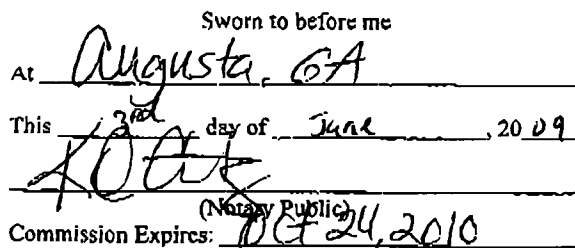 Sworn to before me
At Augusta, GA
This 3rd day of June, 2009
(Notary Public)
Commission Expires: Oct 24, 2010